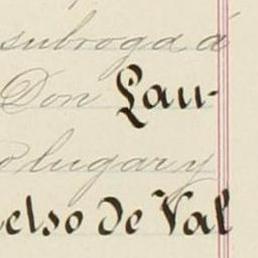 subroga á
Don Lau-
lugar y
elso de Val